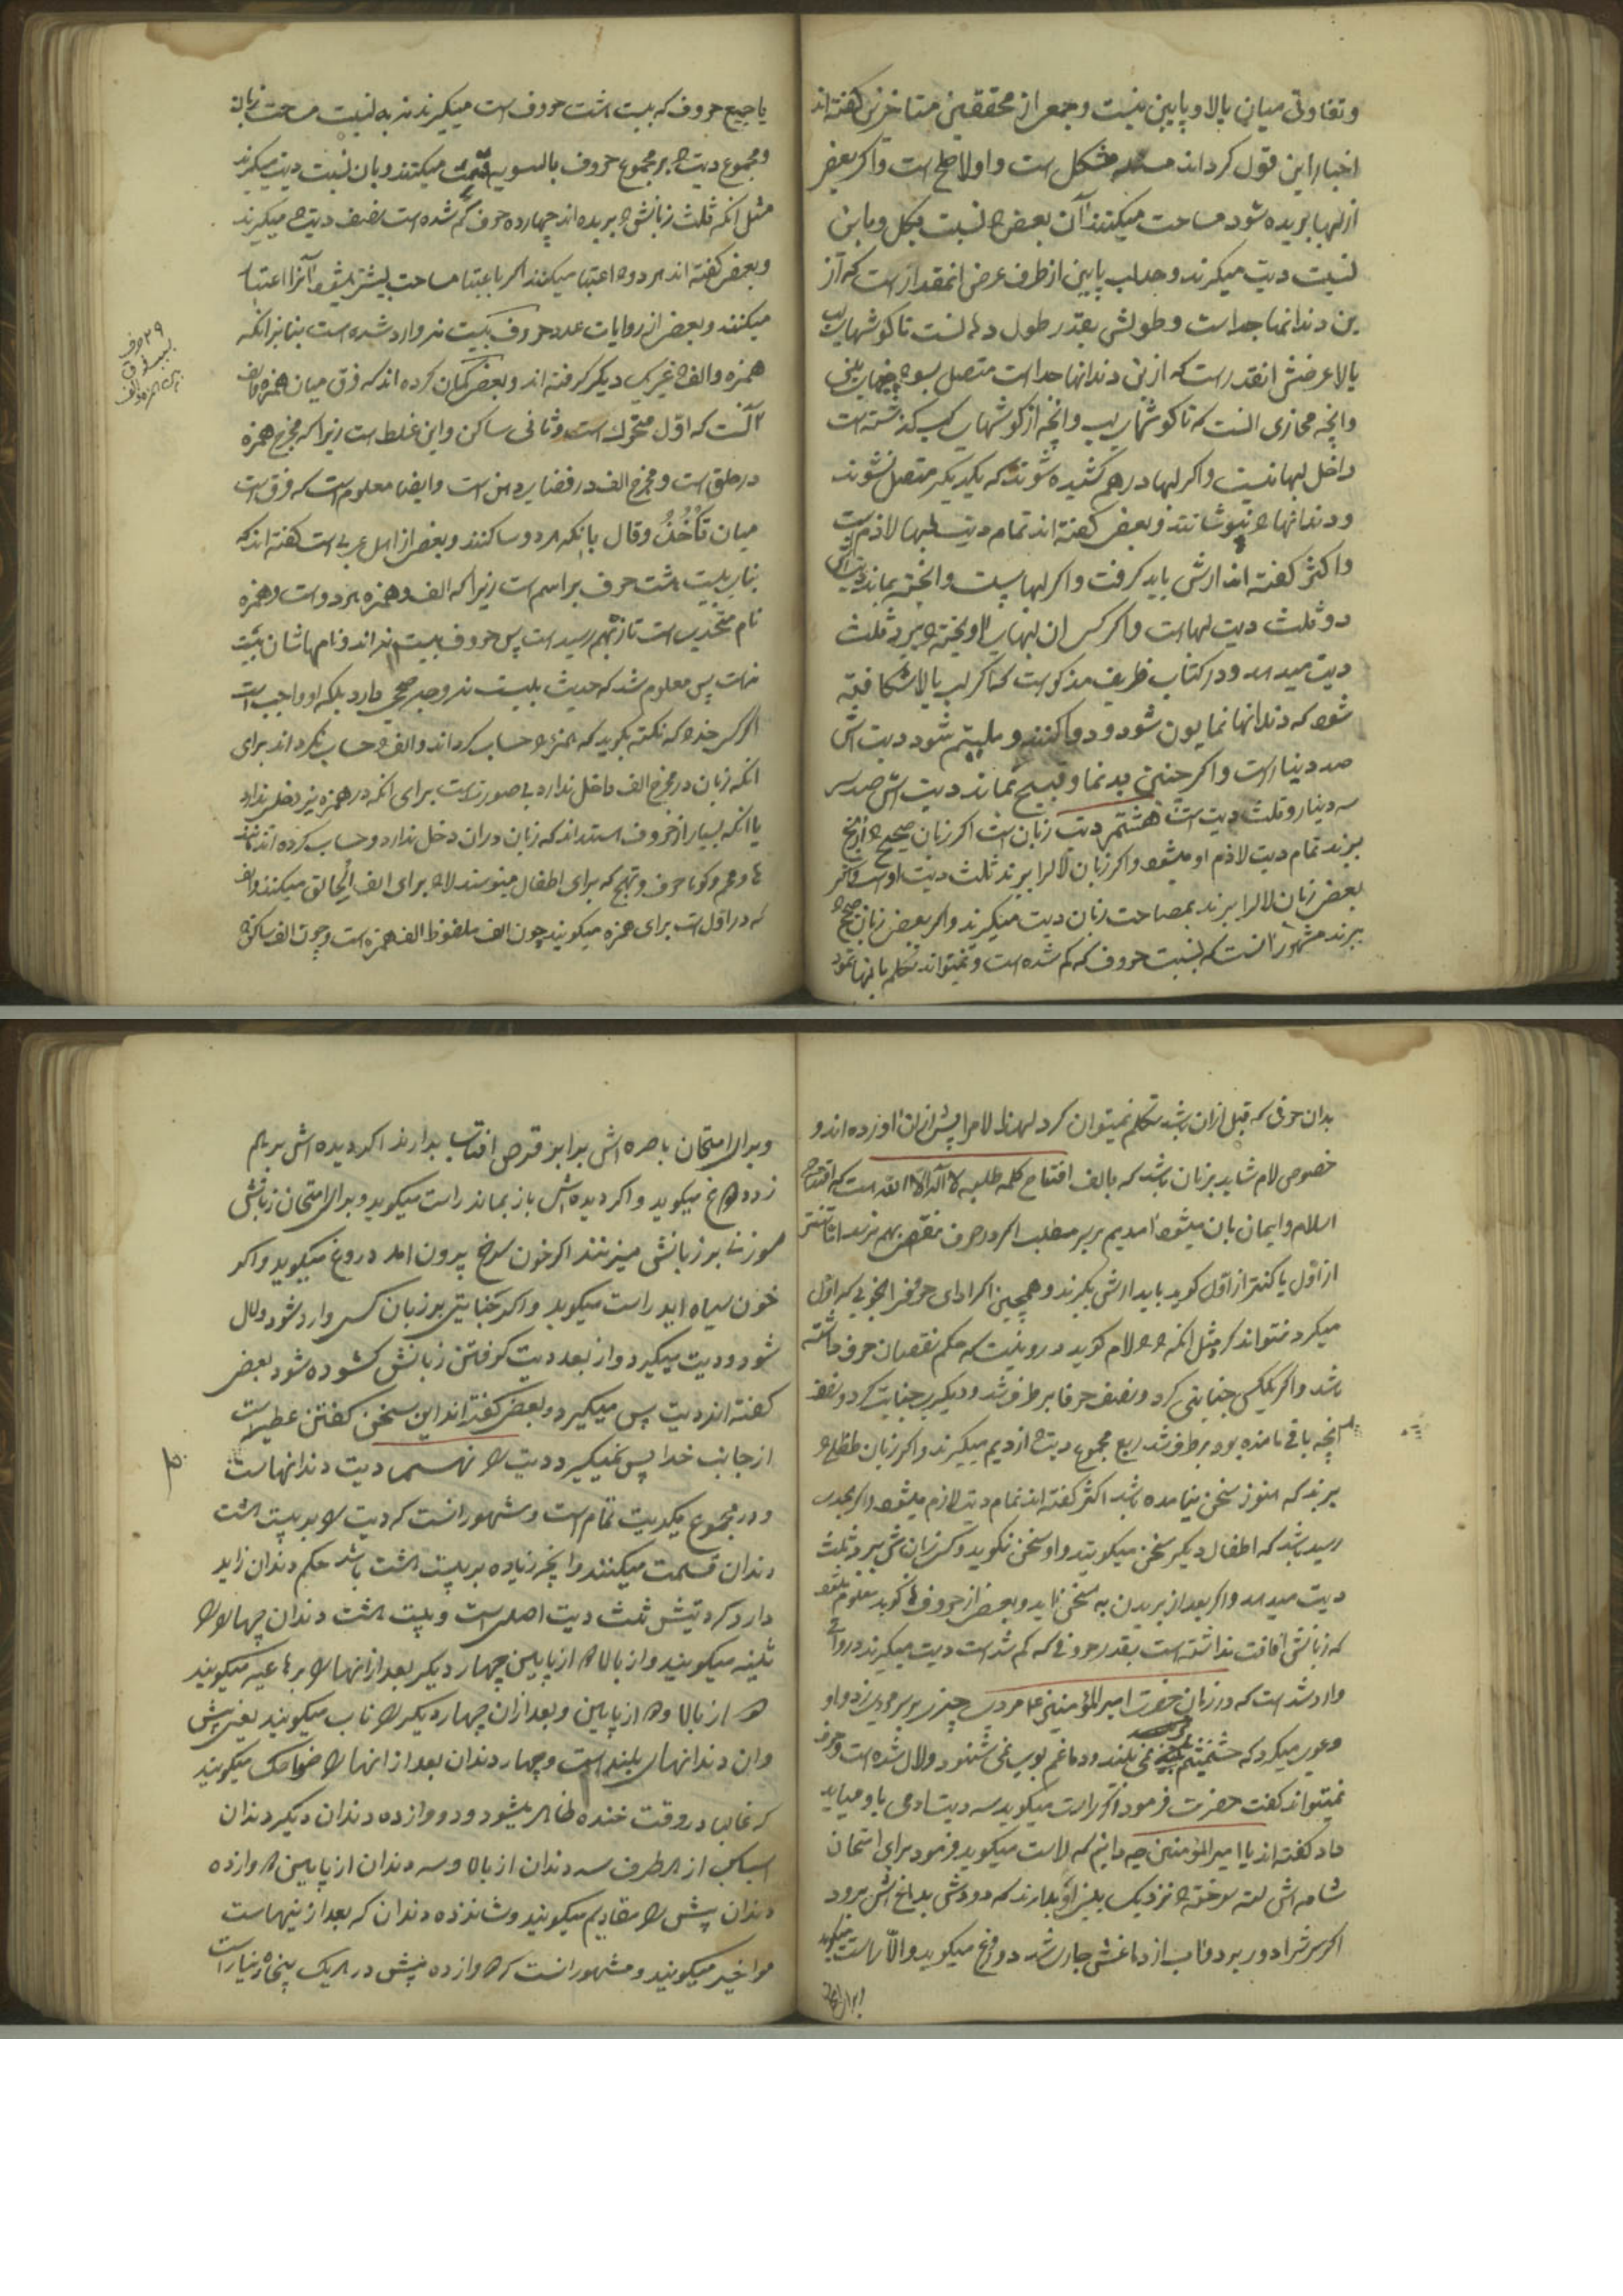 وتفاوتی میان بالا و پایین نیست و جمعی از محققین متاخرین گفته اند
اخبار این قول کرده اند مسئله مشکل است و اولا صلح است و اگر بعضی
از لبها بریده شود مساحت میکنند آن بعض را نسبت بکل و باین
نسبت دیت میگیرند و حد لب پایین از طرف عرض انمقدار است که از
بن دندانها جداست و طولش بقدر طول دهانست تا گوشهای لب
بالا عرضش انقدر است که از بن دندانها جداست متصل بسوراخهای بینی
وانچه محاذی انست که تا گوشهای لب وانچه از گوشهای لب گذشته است
داخل لبها نیست واگر لبها درهم کشیده شوند که یکدیگر متصل نشوند
و دندانها را نپوشانند و بعضی گفته اند تمام دیت لبها لازم است
واکثر گفته اند ارش باید گرفت واگر لبها سست وانخته بماند دیتش
دو ثلث دیت لبهاست واگر کسی ان لبهای اویخته را ببرد ثلث
دیت میدهد ودر کتاب ظریف مذکور است که اگر لب بالا شکافته
شود که دندانها نمایون شود و دوا کنند و ملیتم شود دیت اش
صد دینار است واگر چنین بدنما و قبیح بماند دیت اش صد سی
سه دینار وثلث دیت است هشتم دیت زبان است اگر زبان صحیح را از بیخ
ببرند تمام دیت لازم او میشود واگر زبان لال را ببرند ثلث دیت اوست واگر
بعض زبان لال را ببرند بمصاحت زبان دیت میگیرند واگر بعض زبان صحیح را
ببرند مشهور انست که نسبت حروف که کم شده است و نمیتواند تکلم بانها نمود
یا جمیع حروف که بیست هشت حروف است میگیرند نه به نسبت مساحت زبان
ومجموع دیت را بر مجموع حروف بالسویه قسمت میکنند وبان نسبت دیت میگیرند
مثل انکه ثلث زبانش را بریده اند چهارده حرف کم شده است نصف دیت را میگیرند
وبعض گفته اند هر دو را اعتبار میکنند اگر باعتبار مساحت بیشتر میشود آنرا اعتبار
میکنند وبعض از روایات عدد حروف بیست نه وارد شده است بنابر انکه
همزه والف را غیر یک دیگر گرفته اند وبعض گمان کرده اند که فرق میان همزه والف
آنست که اول متحرک است وثانی ساکن واین غلط است زیرا که مخرج همزه
در حلق است و مخرج الف در فضای دهن است وایضا معلوم است که فرق است
میان تأخذ وقال بانکه هر دو ساکنند وبعض از اهل عربی است گفته اند که
بنای بیست هشت حرف بر اسم است زیرا که الف وهمزه هر دو است وهمزه
نام متحدیست تازه بهم رسید است پس حروف بیست نه اند ونامهاشان بیست
هشت پس معلوم شد که حدیث بیست نه وجه صحیح دارد بلکه او واجب است
اگر کسی خرده که نکته بگوید که همزه را حساب کرده اند والف را حساب نکرده اند برای
انکه زبان در مخرج الف داخل ندارد بی صورتست برای انکه در همزه نیز دخلی ندارد
یا انکه بسیار از حروف هستند که زبان دران دخل ندارد و حساب کرده اند مانند
که در اول است برای همزه میگویند چون الف ملفوظ الف همزه است وچون الف ساکن را
۲۹ حرف
بدان حرفی که قبل ازان باشد تکلم نمیتوان کرد لهذا لام را پیش ازان اوزده اند و
خصوص لام شاید بزنان باشد که بالف افتتاح کلمه طیبه لا اله الا الله است که افتتاح
اسلام وایمان بان میشود امدیم بر سر مطلب اگر در حرف نقص بهم نرسد اما
از اول یا کندتر از اول گوید باید ارش بگیرند وهمچنین اگر ادای حرفی را بخوبی که اول
میکرد نتواند کرد مثل انکه را لام گوید دور نیست که حکم نقصان حرف داشته
باشد واگر یککس جنایتی کرد ونصف حرفها برطرف شد ودیگری جنایت کرد ونصف
انچه باقی نامنده بود برطرف شد ربع مجموع دیت را از دیم میگیرند واگر زبان طفل را
ببرند که هنوز بسخن نیامده باشد اکثر گفته اند تمام دیت لازم میشود واگر بحدی
رسید باشد که اطفال دیگر سخن میگویند واو سخن نگوید وکسی زبانش ببرد ثلث
دیت میدهد واگر بعد از بریدن به سخن اید وبعض از حروف را گوید معلوم میشود
که زبانش افت نداشته است بقدر حروفی که کم شد است دیت میگیرند در روایتی
وارد شد است که در زمان حضرت امیر المؤمنین ع مردی چیزی بر سر مردی زد واو
دعوی میکرد که چشمم چیزی نمی بیند ودماغم بوی نمی شنود ولال شده است وحرف
نمیتواند گفت حضرت فرمود اگر راست میگوید سه دیت ادمی باو میباید
داد گفته اند یا امیر المؤمنین چه دانیم که راست میگوید فرمود برای امتحان
شامه اش لته سوخته را نزدیک بینی او بدارند که دودش بدماغش برود
اگر سرش را دور برد واب از دماغش جاری شد دروغ میگوید والا راست میگوید
وبرای امتحان
وبرای امتحان باصره اش برابر قرص افتاب بدارند اگر دیده اش بر هم
زد دروغ میگوید واگر دیده اش باز بماند راست میگوید وبرای امتحان زبانش
سوزنی بر زبانش میزنند اگر خون سرخ بیرون امد دروغ میگوید واگر
خون سیاه اید راست میگوید واگر جنایتی بر زبان کسی وارد شود ولال
شود ودیت میگیرد واز بعد دیت گرفتن زبانش گشوده شود بعضی
گفته اند دیت پس میگیرد وبعض گفته اند این سخن گفتن عطیه است
از جانب خدا پس نمیگیرد دیت را نهم دیت دندانهاست
ودر مجموع یکدیت تمام است ومشهور انست که دیت را بر بیست هشت
دندان قسمت میکنند وانچه زیاده بر بیست هشت باشد حکم دندان زاید
دارد که دیتش ثلث دیت اصلی است وبیست هشت دندان چهار را
ثنیه میگویند دو از بالا دو از پایین چهار دیگر بعد از انها را رباعیه میگویند
دو از بالا دو از پایین وبعد ازان چهار دیگر را ناب میگویند یعنی نیش
وان دندانهای بلند است وچهار دندان بعد از انها را ضواحک میگویند
که غالبا در وقت خنده ظاهر میشود ودوازده دندان دیگر دندان
اسیاست از هر طرف سه دندان از بالا وسه دندان از پایین دوازده
دندان پیش را مقادیم میگویند وشانزده دندان که بعد از اینهاست
مواخیر میگویند ومشهور انست که دوازده پیش در هر یک پنجاه دینار است